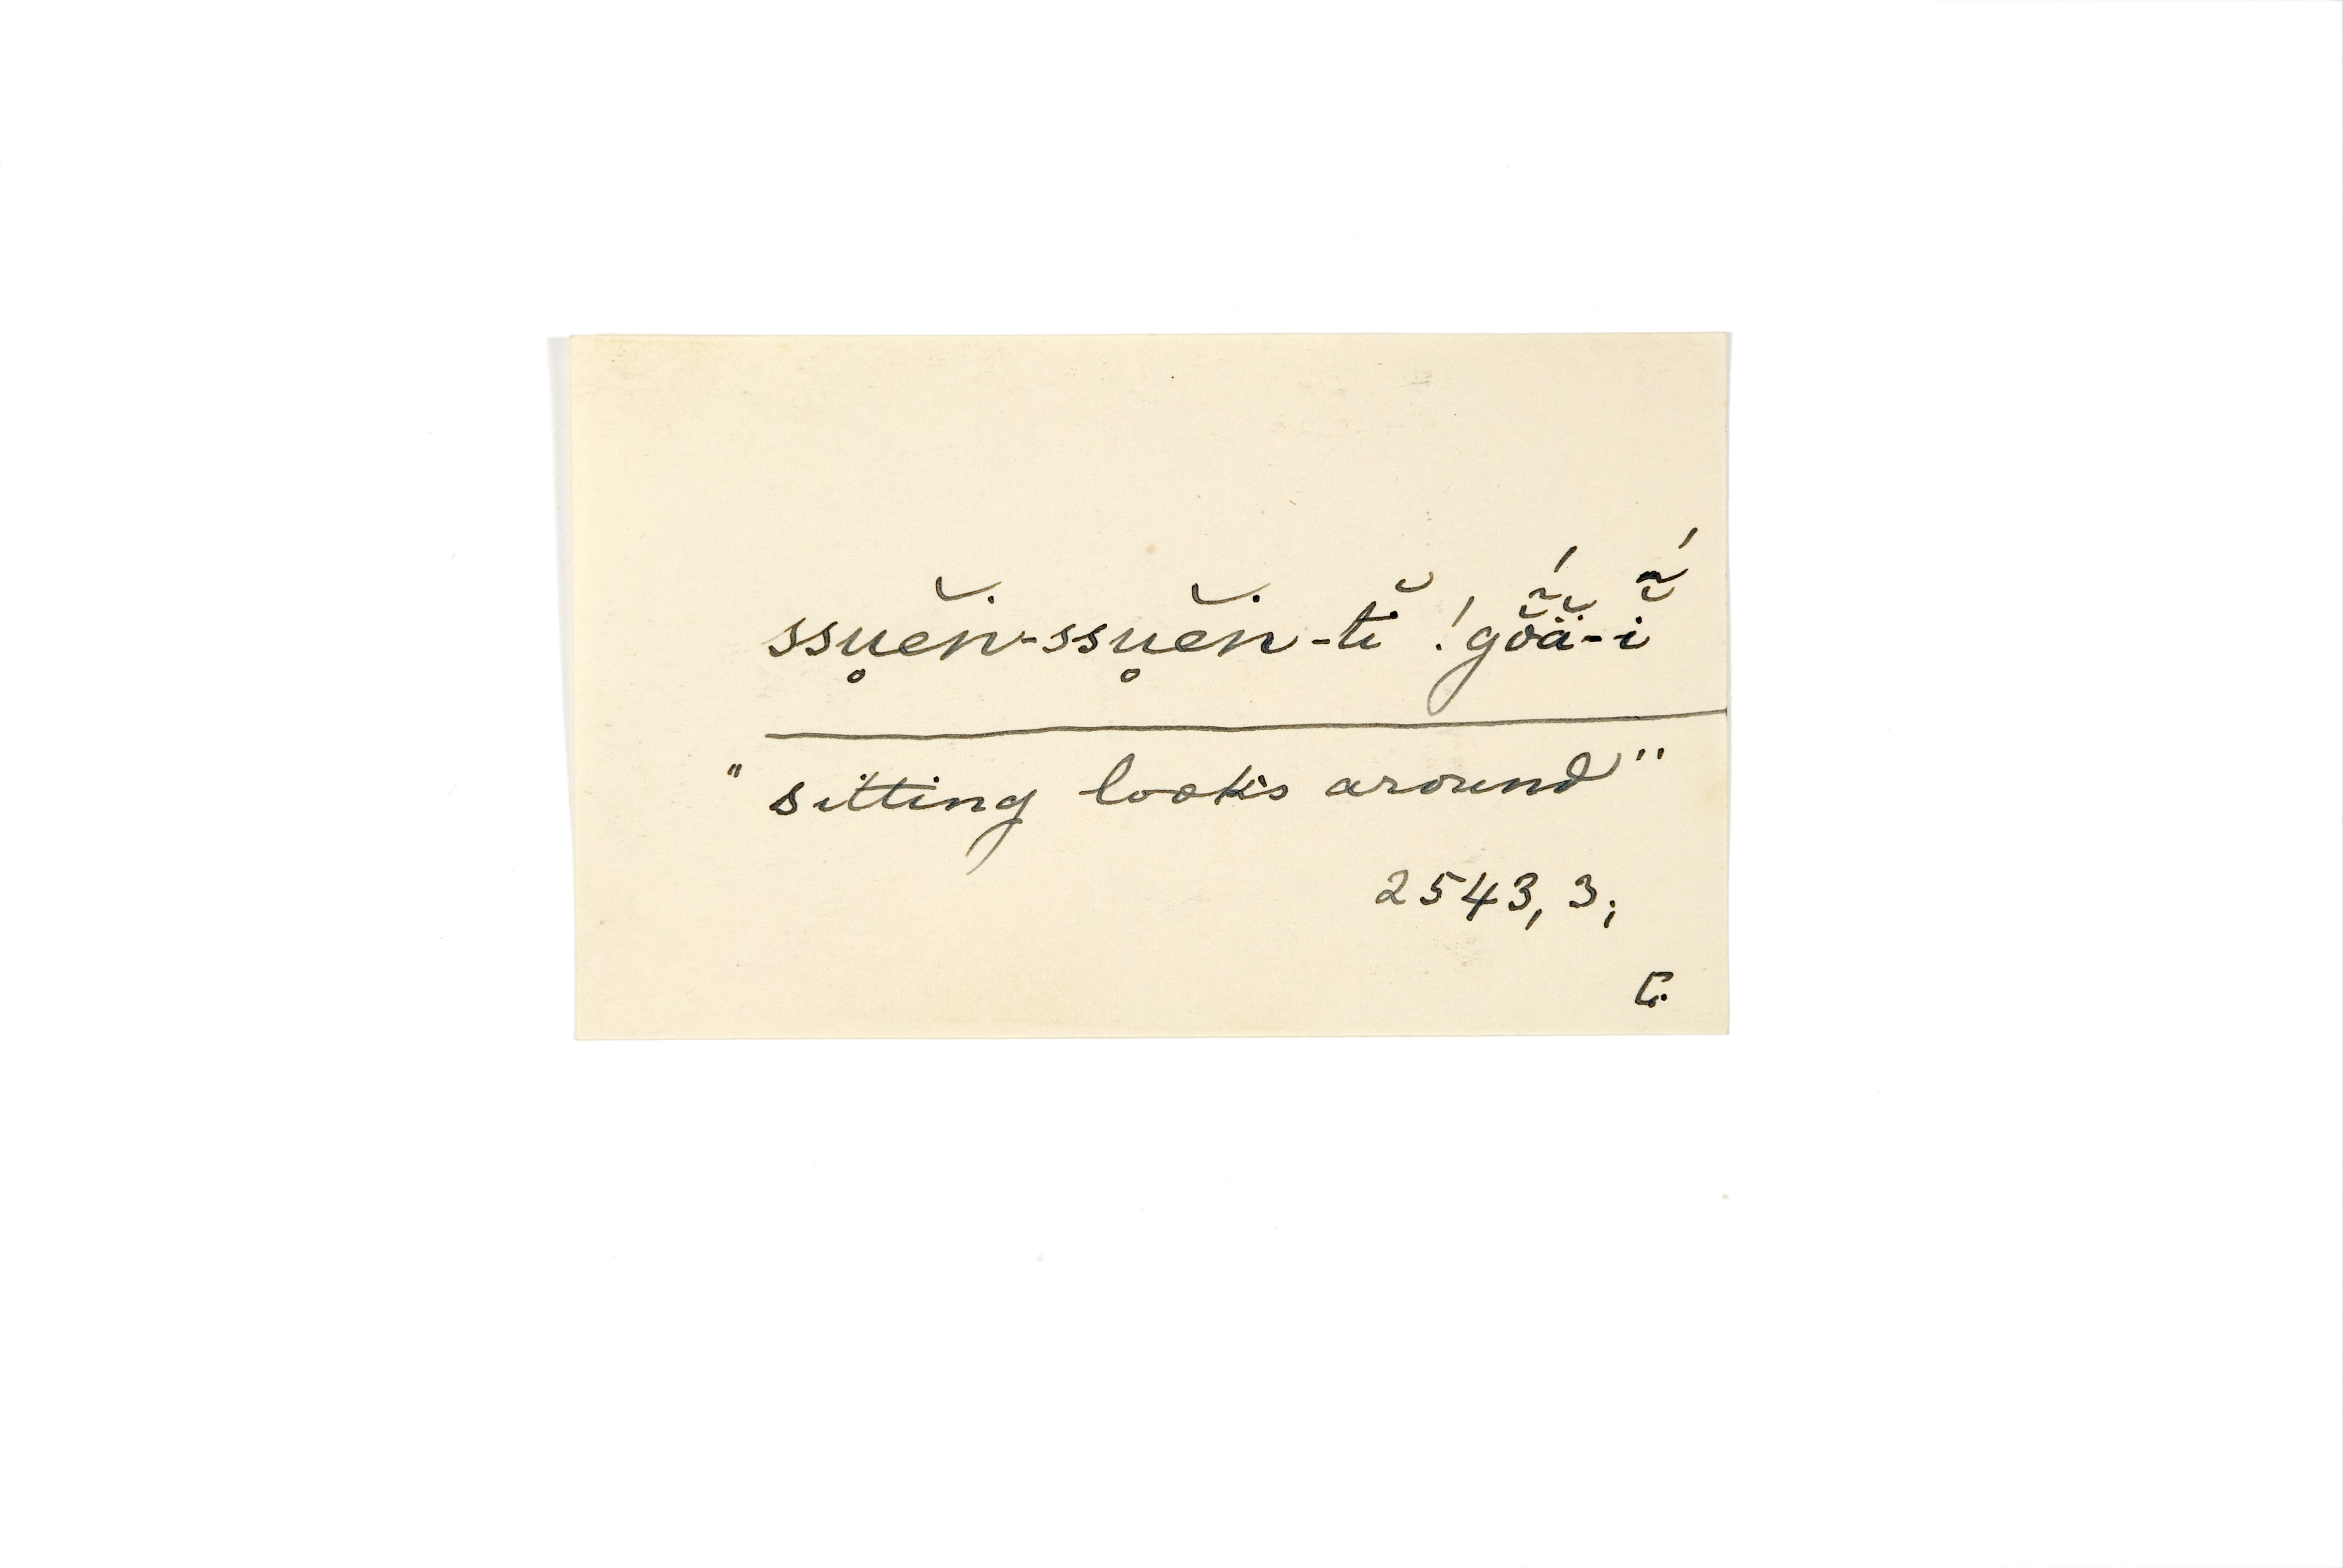 ssu̥ĕṅ-ssu̥ĕṅ-tĭ !gõ̯̆́ä̆-ĭ̃́
" sitting looks around"
2543, 3;